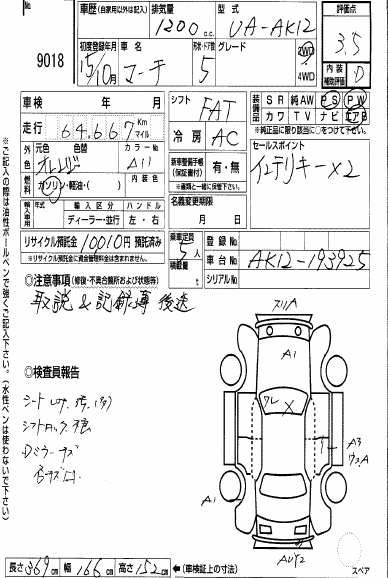 No.
9018
車歴 (自家用以外は記入) 排気量 型式
1200 c.c. UA-AK12
評価点
3.5
初度登録年月 車名 形状・ドア数 グレード
15/10月 マーチ 5
2WD
4WD
内装
補助評価 D
車検 年 月
走行 64,667 Km マイル
シフト FAT
冷房 AC
装備品 SR 純AW PS PW
カワ TV ナビ エアB
※純正品に限り該当に○をつけて下さい。
外色 元色 色替 カラーNo.
オレンジ A11
燃料 ガソリン・軽油・( ) 内装色
新車整備手帳 (保証書付) 有・無
※書類と一緒に保管下さい。
セールスポイント
インテリキーX2
輸入車用 年式 輸入区分 ハンドル
ディーラー・並行 左・右
名義変更期限
月 日
リサイクル預託金 10010円 預託済み
※リサイクル預託金に資金管理料金は含まれません。
乗車定員 5人
積載量 t
登録No.
車台No. AK12-193925
シリアルNo.
◎注意事項 (修復・不具合箇所および状態等)
取説&記録簿 後送
◎検査員報告
シート
シフトロック
Dミラーキズ
スリA
A1
ワレ X
A3
A1
長さ 369cm 幅 166cm 高さ 152cm ←(車検証上の寸法)
スペア
※ご記入の際は油性ボールペンで強くご記入下さい。(水性ペンは使わないで下さい)